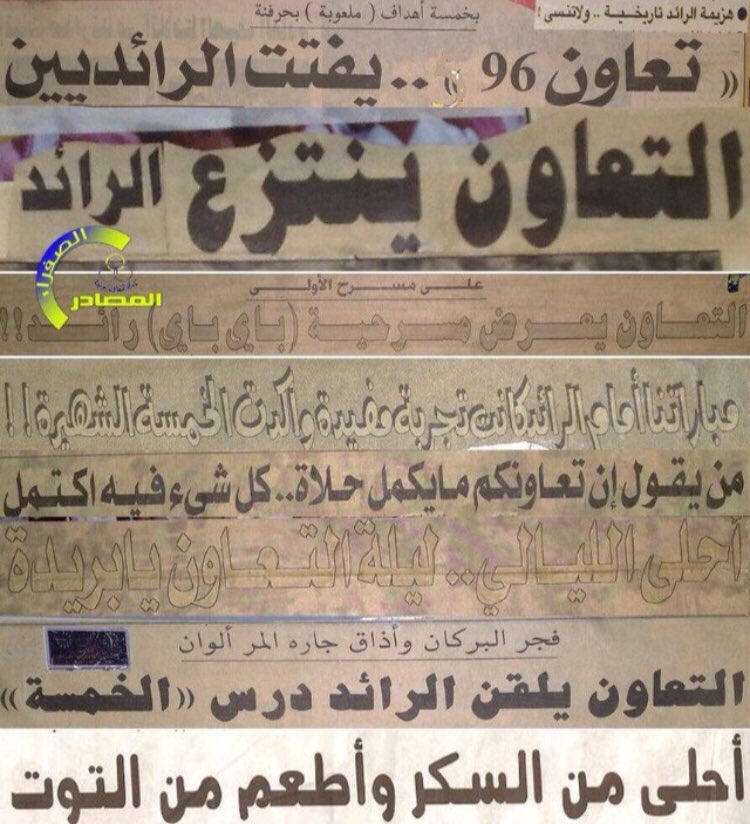 ● هزيمة الرائد تاريخية .. ولاننسى !
بخمسة أهداف ( ملعوبة ) بحرفنة
« تعاون 96 » .. يفتت الرائديين
التعاون ينتزع الرائد
الصفراء
المصادر
على مسرح الأولى
التعاون يعرض مسرحية (باي باي) رائد!!
مباراتنا أمام الرائد كانت تجربة مفيدة وأكدت الخمسة الشهيرة!!
من يقول إن تعاونكم مايكمل حلاة.. كل شيء فيه اكتمل
أحلى الليالي.. ليلة التعاون يابريدة
فجر البركان وأذاق جاره المر ألوان
التعاون يلقن الرائد درس «الخمسة»
أحلى من السكر وأطعم من التوت